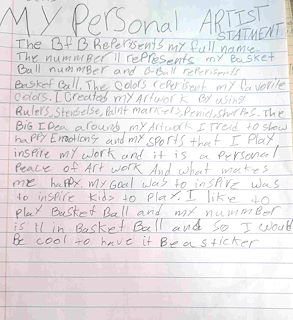 My Personal ARTIST
STATMENT
The BFB Reperisents my full name.
The nummber 11 rePresents my basket
Ball nummber and B-Ball reperisents
Basket Ball. The colors reperisent my favorite
colors. I created my Artwork By using
Rulers, Stencelse, Paint markers, Pencils, sharpies. The
BIG IDea around my Artwork I Tried to show
happy Emotions and my sports that I Play
inspire my work and it is a Personal
Peace of Art work And what makes
me happy. my Goal was to inspire was
to inspire kids to Play. I like to
Play BasketBall and my nummber
is 11 in Basket Ball and so I would
Be cool to have it Be a sticker